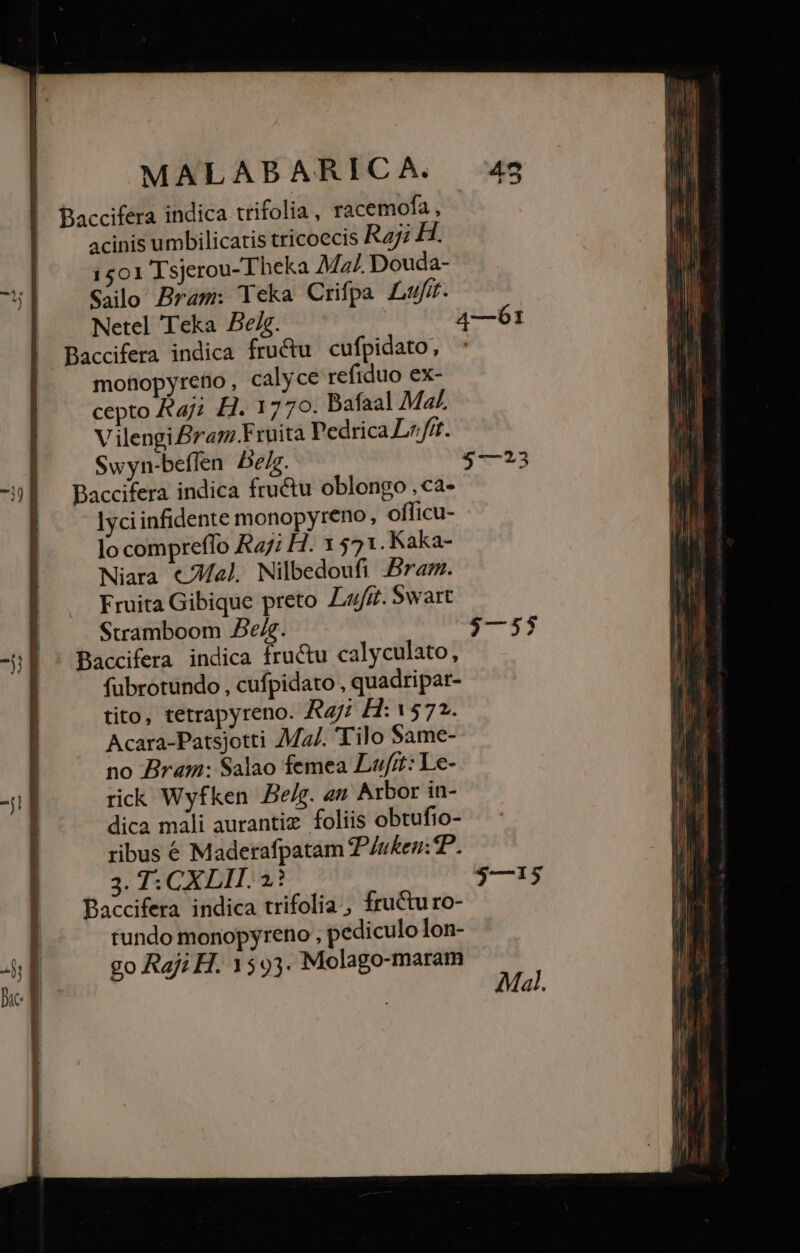 MALABARICA. 43
Baccifera indica trifolia, racemoſa,
acinis umbilicatis tricoccis Raji H.
1501 Tsjerou-Theka Mal. Douda-
Sailo Bram: Teka Criſpa Luſit.
Netel Teka Belg. 4—61
Baccifera indica fructu cuſpidato,
monopyreno, calyce reſiduo ex-
cepto Raji H. 1770. Baſaal Mal.
Vilengi Bram. Fruita Pedrica Luſit.
Swyn-beſſen Belg. 5—23
Baccifera indica fructu oblongo, ca-
lyci inſidente monopyreno, officu-
lo compreſſo Raji H. 1571. Kaka-
Niara Mal. Nilbedouſi Bram.
Fruita Gibique preto Luſit. Swart
Stramboom Belg. 5—55
Baccifera indica fructu calyculato,
ſubrotundo, cuſpidato, quadripar-
tito, tetrapyreno. Raji H: 1572.
Acara-Patsjotti Mal. Tilo Same-
no Bram: Salao femea Luſit: Le-
rick Wyſken Belg. an Arbor in-
dica mali aurantiæ foliis obtuſio-
ribus é Maderaſpatam Pluken: P.
3. T: CXLII. 2? 5—15
Baccifera indica trifolia, fructu ro-
tundo monopyreno, pediculo lon-
go Raji H. 1593. Molago-maram
Mal.